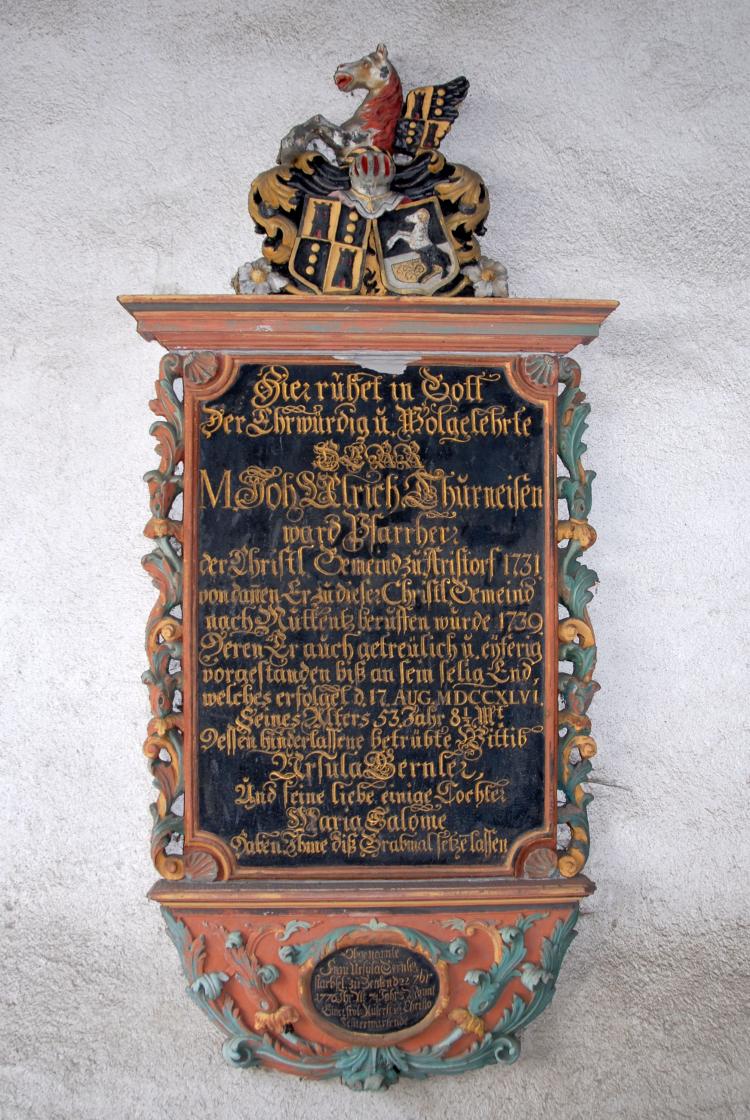 Hier rühet in Gott
Der Ehrwürdig u. Wolgelehrte
HERR
M. Joh. Ulrich Thurneisen
ward Pfarrher
der Christl Gemeind zu Aristorf 1731.
von dannen Er zu dieser Christl Gemeind
nach Muttentz beruffen wurde 1739
Deren Er auch getreülich u. eyferig
vorgestanden biß an sein selig End,
welches erfolget d. 17. AUG. MDCCXLVI
Seines Alters 53. Jahr 8½ Mt
Dessen hinderlassene betrübte Wittib
Ursula Gernler,
Und seine liebe einige Tochter
Maria Salome
Haben Ihme diß Grabmal setze lassen
Obgenante
Frau Ursula Gernler
starb
zu
22
1770